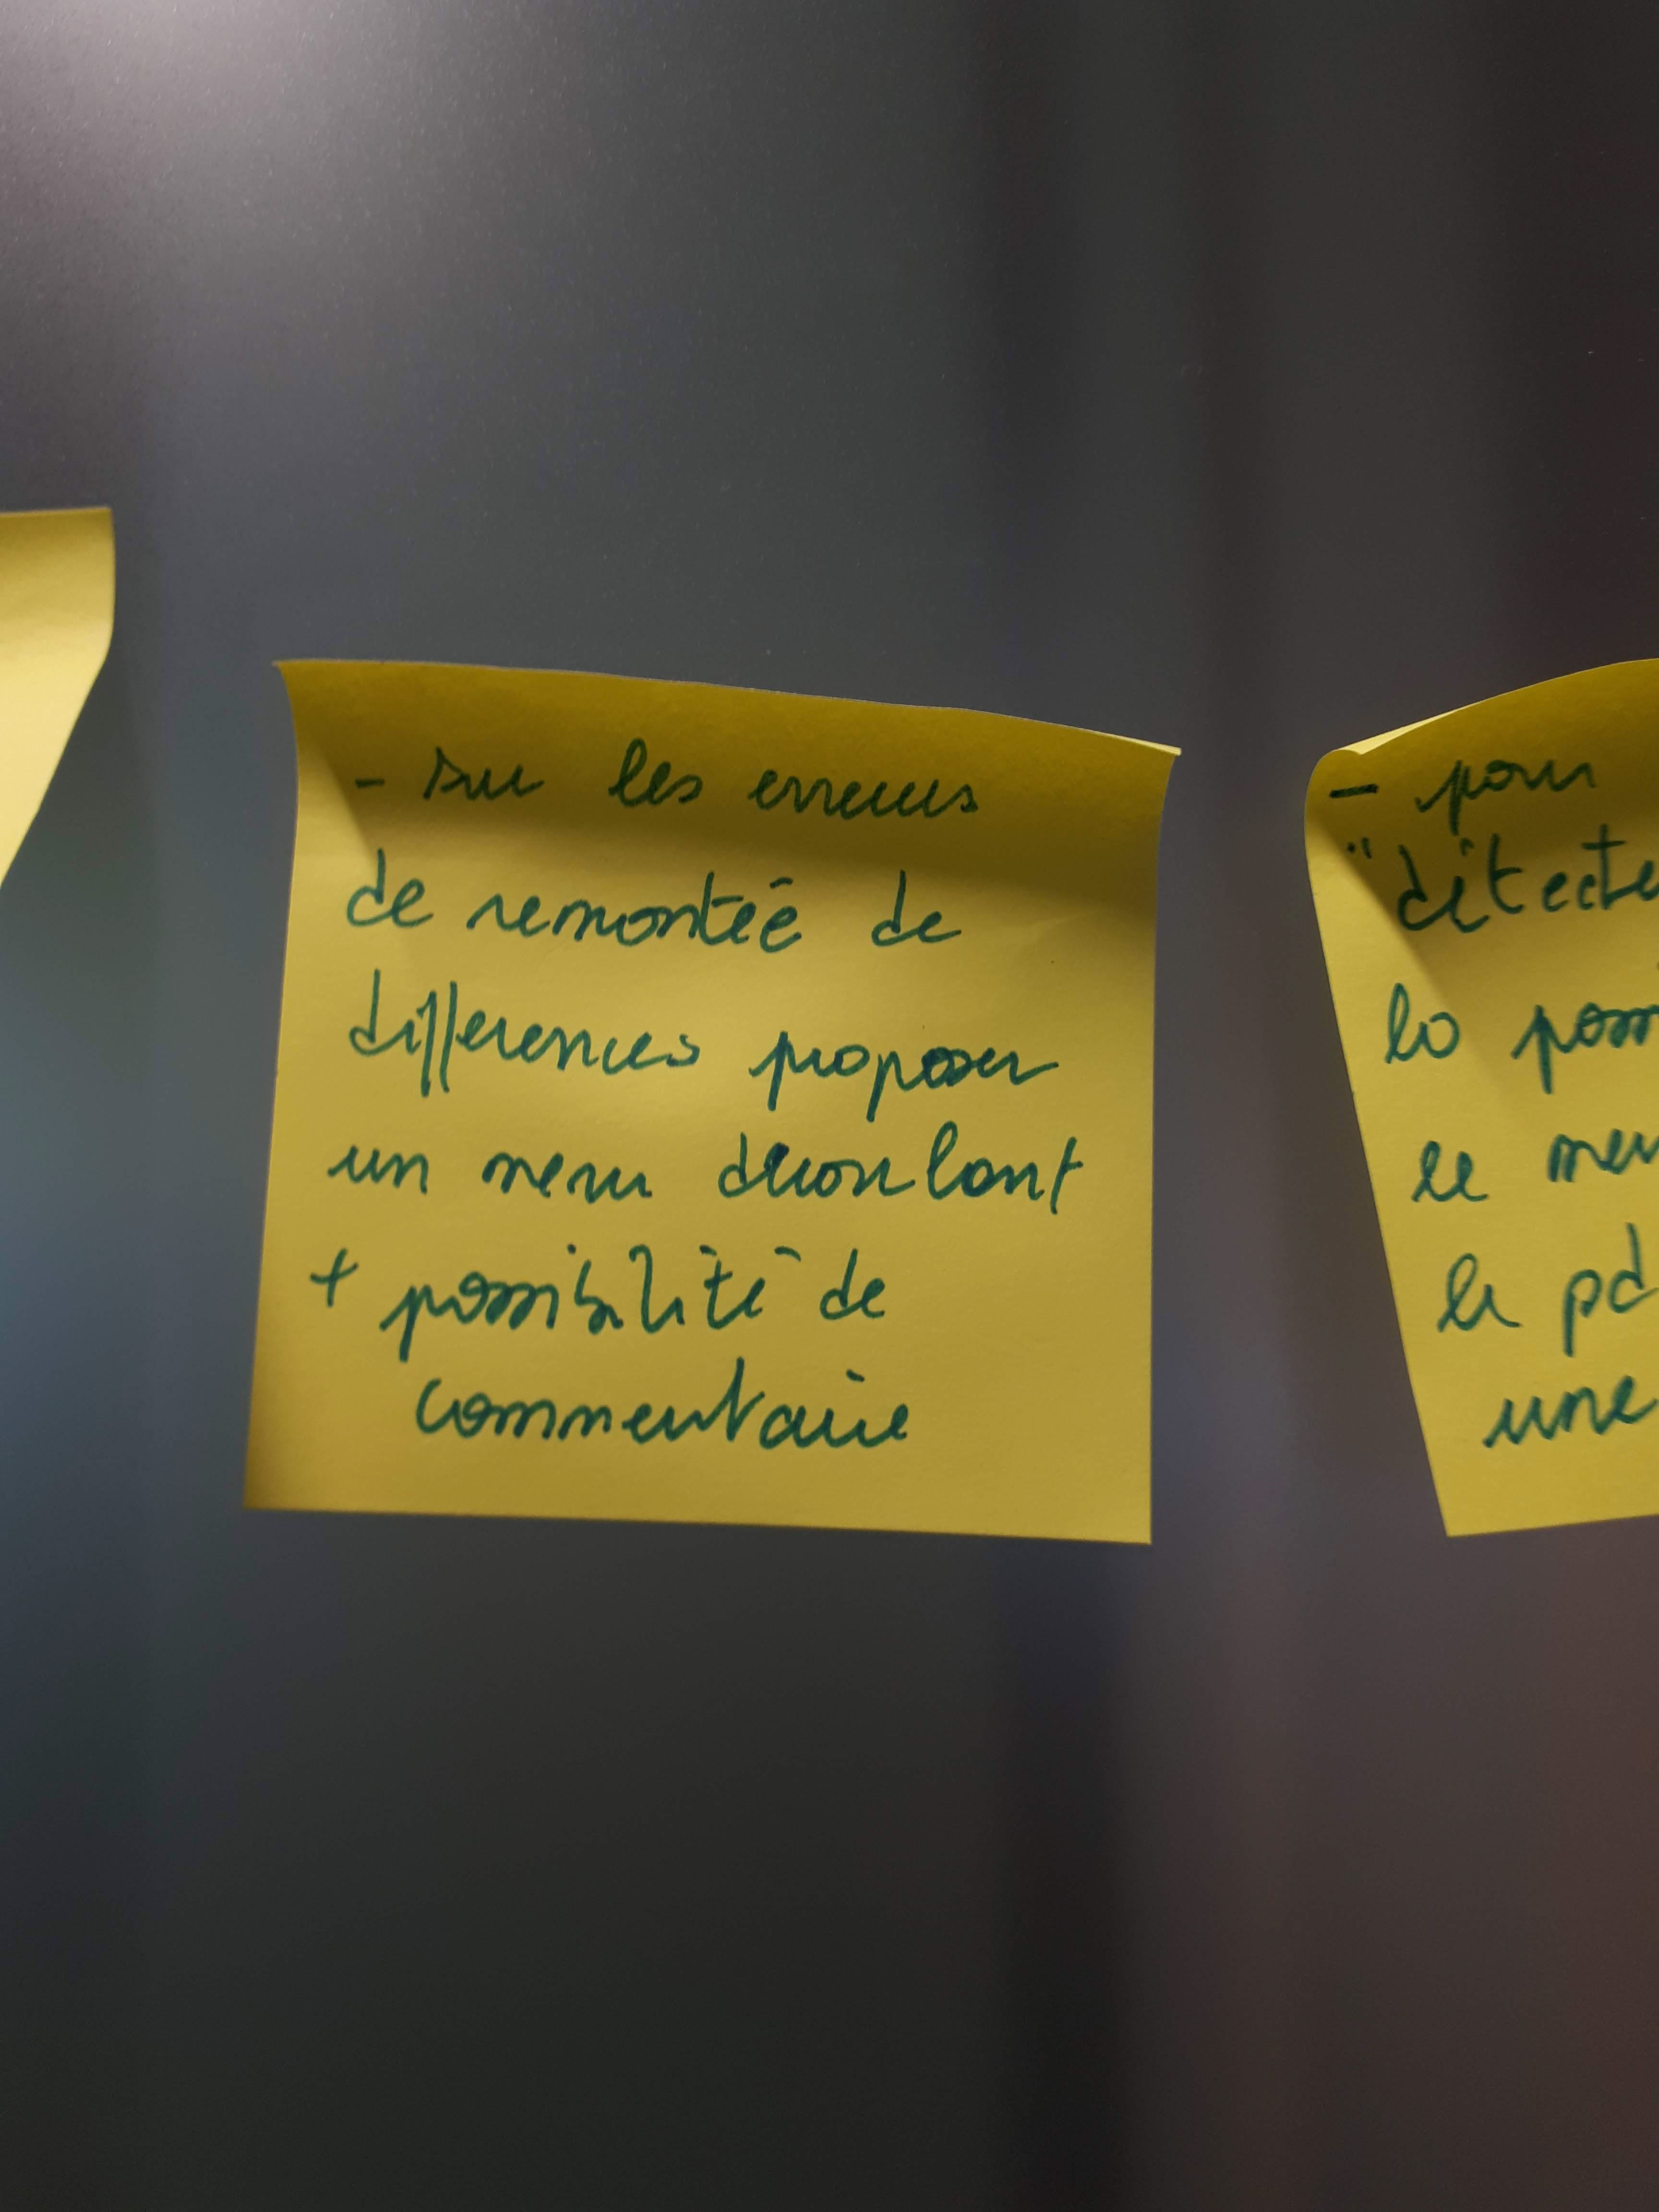 - sur les erreurs
de remontée de
differences proposer
un menu deroulant
+ possibilité de
commentaire
- pour
"détecte
la poss
ce men
le pd
une